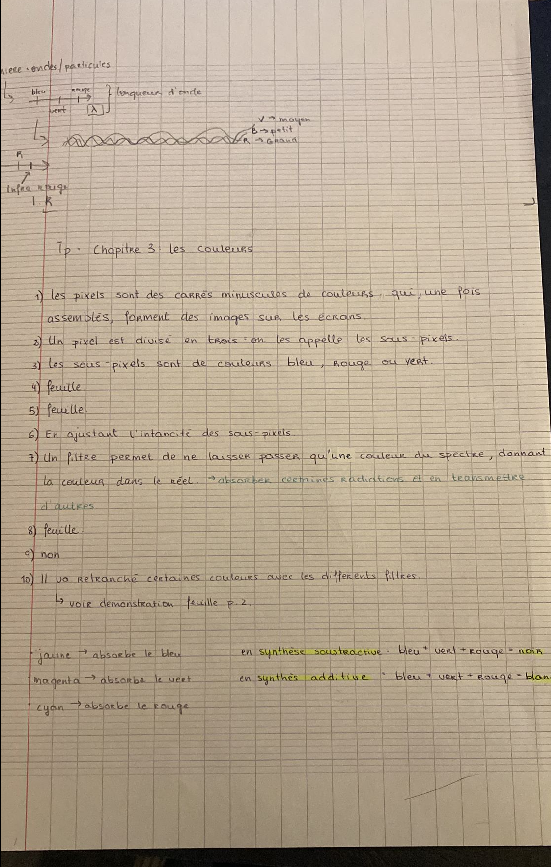 ondes/particules
bleu rouge
vert λ longueur d'onde
V → moyen
B → petit
R → Grand
R
Infra rouge
I R
Tp - Chapitre 3: les couleurs
1) les pixels sont des carrés minuscules de couleurs qui, une fois
assemblés, forment des images sur les écrans.
2) Un pixel est divisé en trois - on les appelle les sous-pixels.
3) les sous-pixels sont de couleurs bleu, rouge ou vert.
4) feuille
5) feuille.
6) En ajustant l'intancité des sous-pixels.
7) Un filtre permet de ne laisser passer qu'une couleur du spectre, donnant
la couleur dans le réel. → absorber certaines radiations et en transmettre
d'autres
8) feuille.
9) non
10) Il va retranché certaines couleurs avec les différents filtres
↳ voir démonstration feuille p.2.
jaune → absorbe le bleu en synthèse soustractive · bleu + vert + rouge = noir
magenta → absorbe le vert en synthès additive · bleu + vert + rouge = blan
cyan → absorbe le rouge